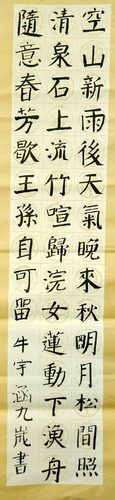 空山新雨後天氣晚來秋明月松間照
清泉石上流竹喧歸浣女蓮動下漁舟
隨意春芳歇王孫自可留牛宇涵九歲書